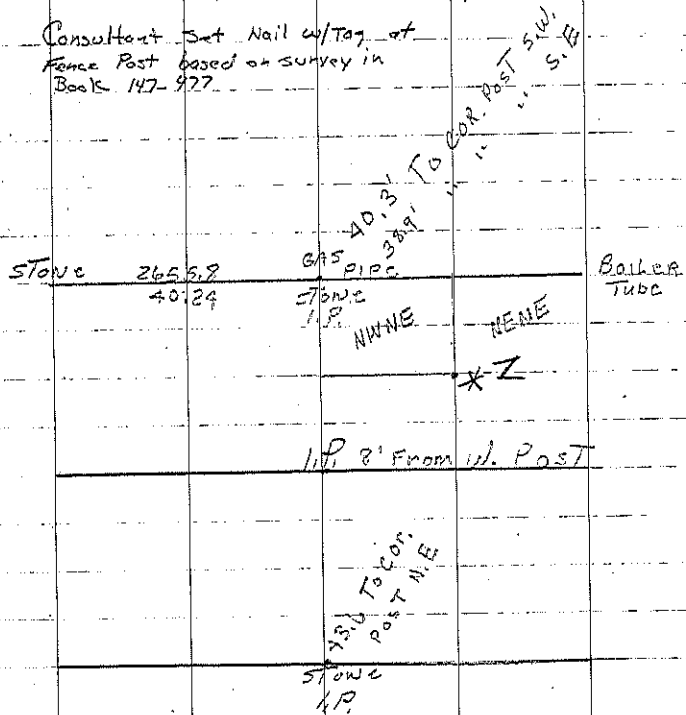 Consultant Set Nail w/Tag at
Fence Post based on survey in
Book 147-977
40.3' TO COR. POST S.W.
38.9' " " " S.E
STONE 2655.8 GAS PIPE BOILER TUBE
40.24 STONE
I.P.
NWNE NENE
* Z
I.P. 8' From W. POST
TO COR.
POST N.E
STONE
I.P.